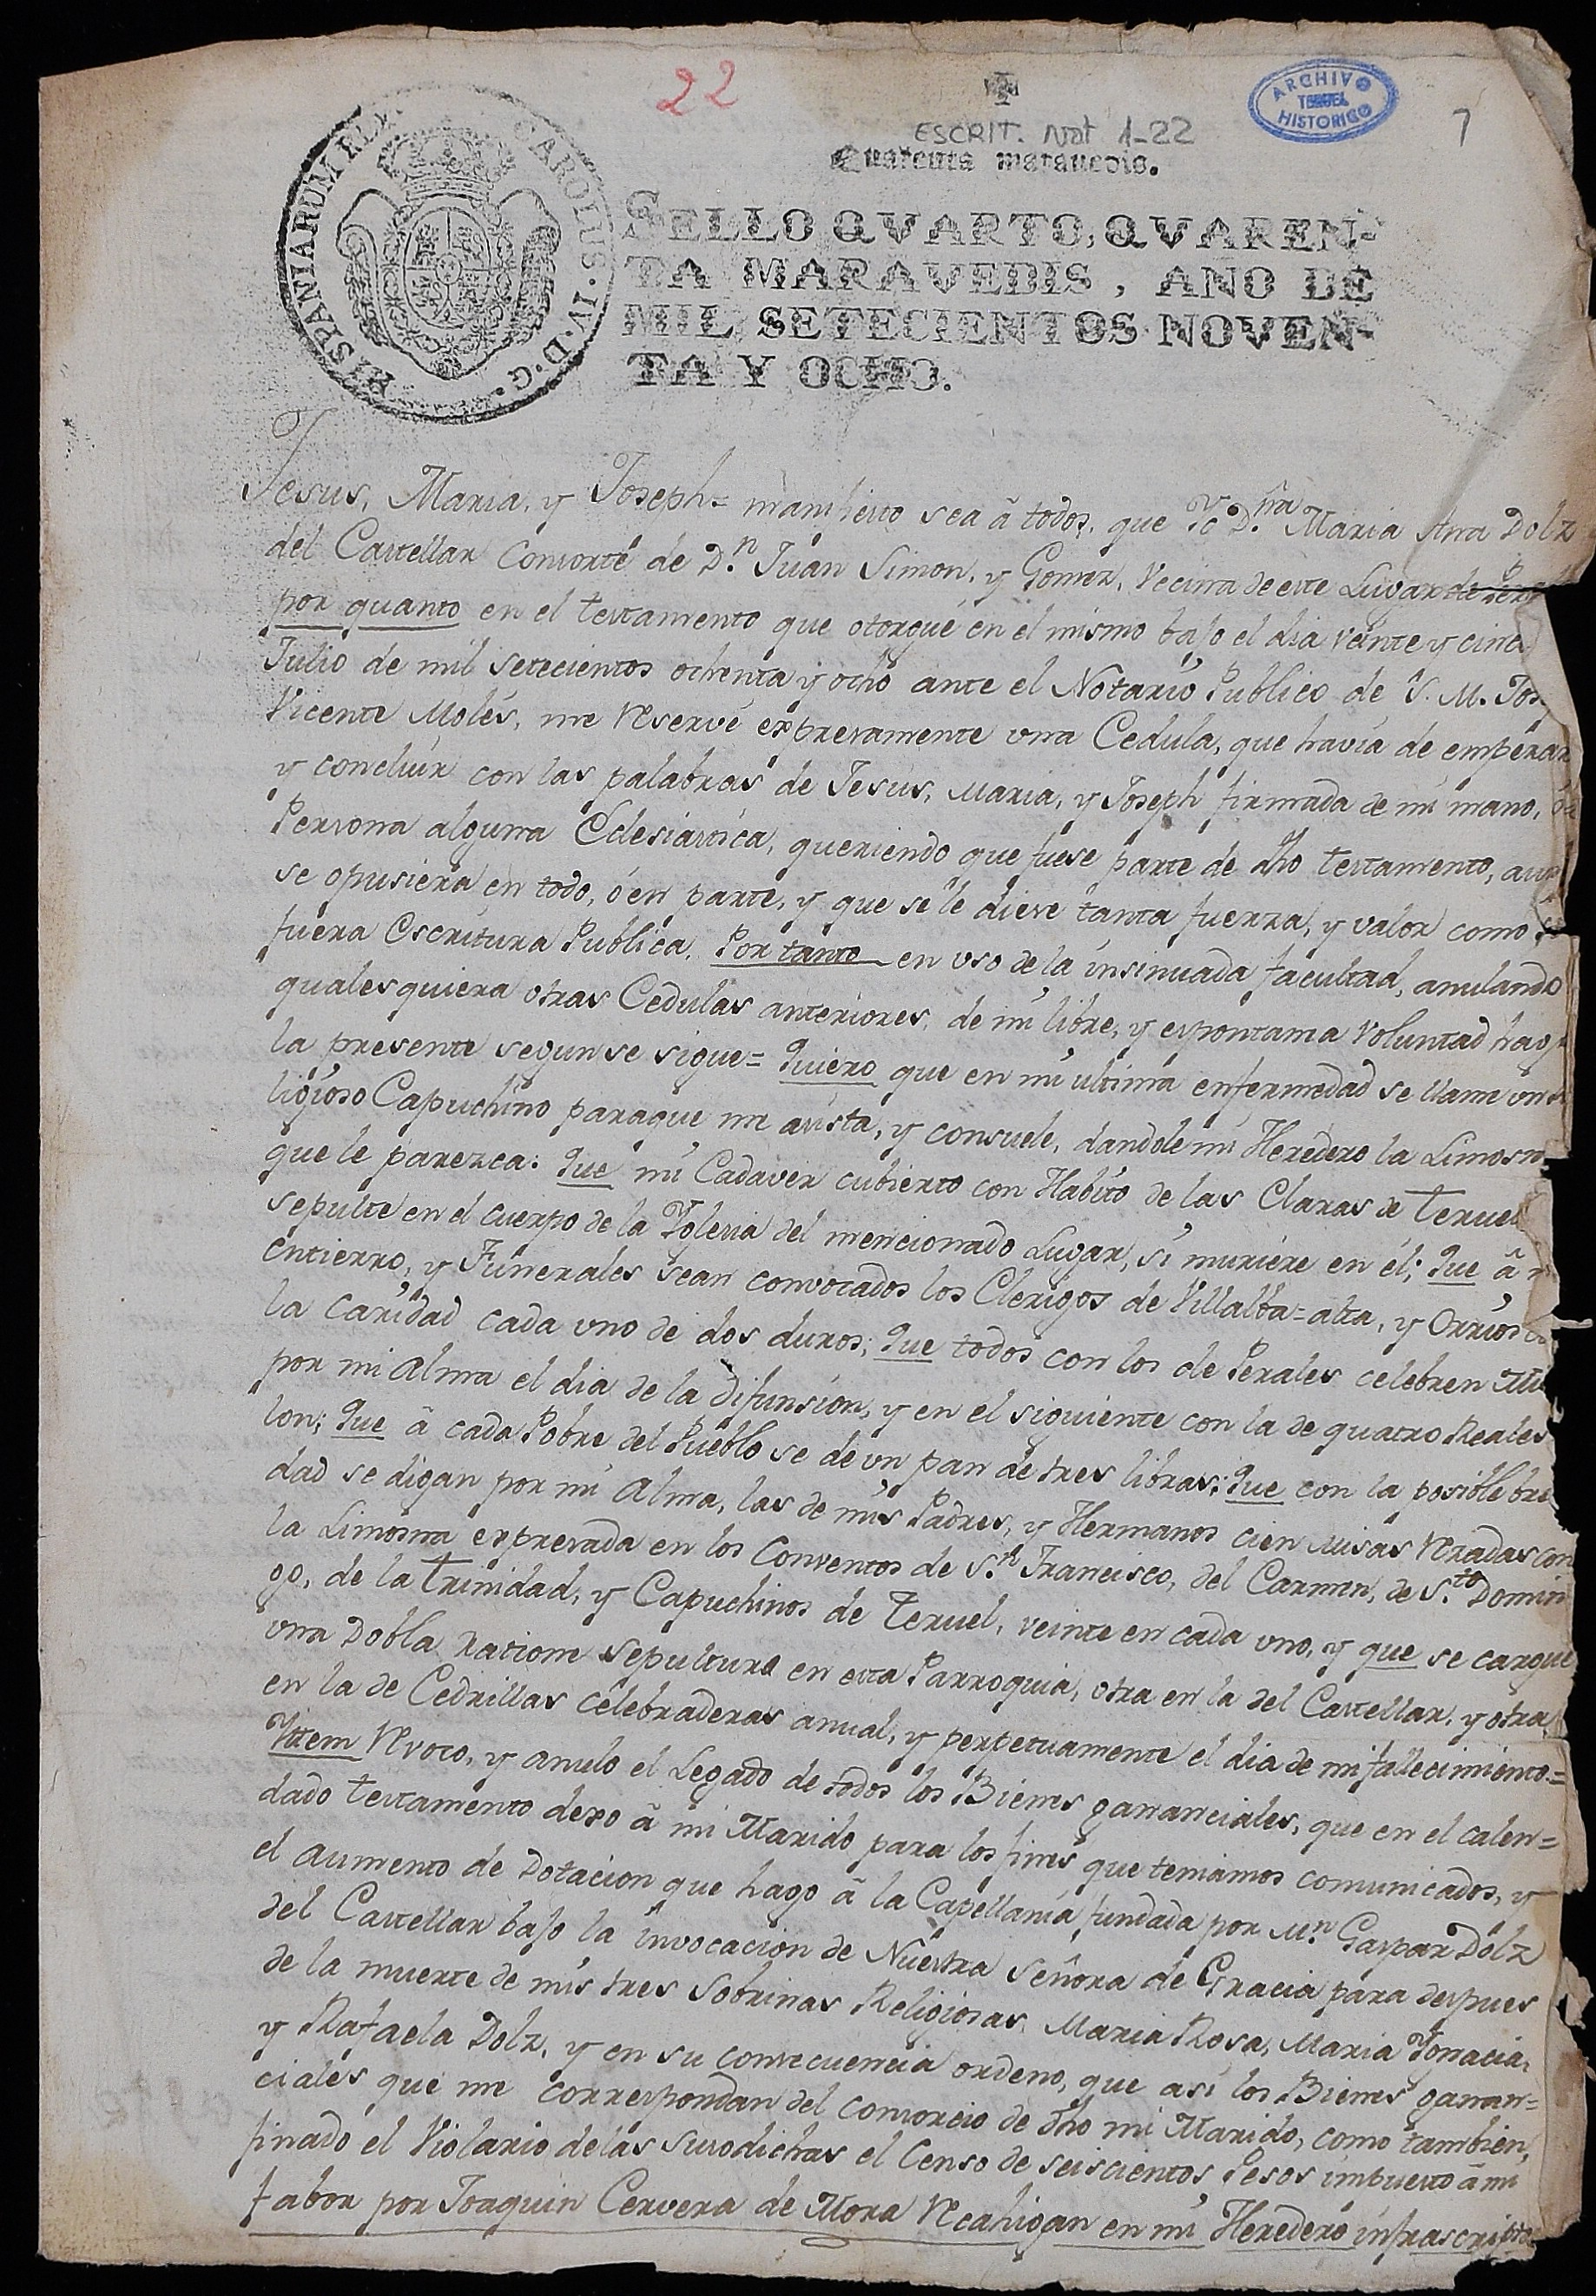 22
ARCHIVO
TERUEL
HISTORICO
7
ESCRIT. Not 1-22
Quarenta maravedis.
HISPANIARUM REX CAROLUS·IV·D·G·
SELLO QVARTO, QVAREN-
TA MARAVEDIS, AÑO DE
MIL SETECIENTOS NOVEN-
TA Y OCHO.
Jesus, Maria, y Joseph= manifiesto sea â todos, que Yo D.ña Maria Ana Dolz
del Castellar Consorte de D.n Juan Simon, y Gomez, Vecina de este Lugar de
por quanto en el testamento que otorgué en el mismo bajo el dia veinte y cinc
Julio de mil setecientos ochenta y ocho ante el Notario Publico de S. M. Jos
Vicente Molés, me reservé expresamente una Cedula, que havia de empezar
y concluir con las palabras de Jesus, Maria, y Joseph firmada de mi mano,
Persona alguna Eclesiastica, queriendo que fuese parte de dho testamento,
se opusiera en todo, ó en parte, y que se le diese tanta fuerza, y valor como
fuera Escritura Publica. Por tanto en uso de la insinuada facultad, anulando
qualesquiera otras Cedulas anteriores, de mi libre, y espontanea voluntad hago
la presente segun se sigue= Quiero que en mi ultima enfermedad se llame un
ligioso Capuchino paraque me asista, y consuele, dandole mi Heredero la Limosn
que le parezca: Que mi Cadaver cubierto con Habito de las Claras de Teruel
sepulte en el cuerpo de la Yglesia del mencionado Lugar, si muriere en él; Que â
entierro, y Funerales sean convocados los Clerigos de Villalba=alta, y Orrios
la caridad cada uno de dos duros; Que todos con los de Perales celebren Mi
por mi Alma el dia de la difunsion, y en el siguiente con la de quatro Reales
lon; Que â cada Pobre del Pueblo se de un pan de tres libras; Que con la posible bre
dad se digan por mi Alma, las de mis Padres, y Hermanos cien Misas rezadas con
la Limosna expresada en los Conventos de S.n Francisco, del Carmen, de S.to Domin
go, de la Trinidad, y Capuchinos de Teruel, veinte en cada uno, y que se cargue
una Dobla ratione sepultura en esta Parroquia, otra en la del Castellar, y otra
en la de Cedrillas celebraderas anual, y perpetuamente el dia de mi fallecimiento.=
Ytem revoco, y anulo el Legado de todos los Bienes gananciales, que en el calen=
dado testamento dexo â mi Marido para los fines que teniamos comunicados, y
el aumento de Dotacion que hago â la Capellania fundada por M.n Gaspar Dolz
del Castellar bajo la invocacion de Nuestra Señora de Gracia para despues
de la muerte de mis tres Sobrinas Religiosas Maria Rosa, Maria Ygnacia,
y Rafaela Dolz, y en su consecuencia ordeno, que asi los Bienes ganan=
ciales que me correspondan del consorcio de dho mi Marido, como tambien,
finado el Violario de las susodichas el Censo de seiscientos Pesos impuesto â mi
fabor por Joaquin Cervera de Mora recahigan en mi Heredero infrascripto